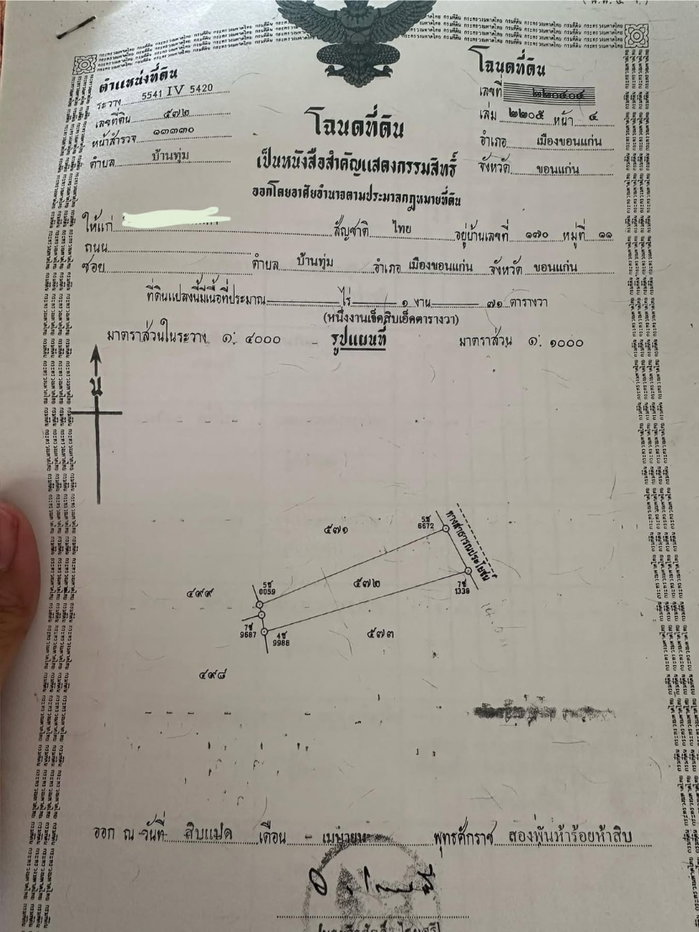 ตำแหน่งที่ดิน
ระวาง 5541 IV 5420
เลขที่ดิน ๕๗๒
หน้าสำรวจ ๑๓๓๓๐
ตำบล บ้านทุ่ม
โฉนดที่ดิน
เลขที่
เล่ม ๒๒๐๕ หน้า ๔
อำเภอ เมืองขอนแก่น
จังหวัด ขอนแก่น
โฉนดที่ดิน
เป็นหนังสือสำคัญแสดงกรรมสิทธิ์
ออกโดยอาศัยอำนาจตามประมวลกฎหมายที่ดิน
ให้แก่ สัญชาติ ไทย อยู่บ้านเลขที่ ๑๗๐ หมู่ที่ ๑๑
ถนน
ซอย ตำบล บ้านทุ่ม อำเภอ เมืองขอนแก่น จังหวัด ขอนแก่น
ที่ดินแปลงนี้มีเนื้อที่ประมาณ ไร่ ๑ งาน ๗๑ ตารางวา
(หนึ่งงานเจ็ดสิบเอ็ดตารางวา)
มาตราส่วนในระวาง ๑: ๔๐๐๐ รูปแผนที่ มาตราส่วน ๑: ๑๐๐๐
น
๕๗๑
5ช
6672
ทางสาธารณประโยชน์
๔๙๙
5ช
0059
๕๗๒
7ช
1339
7ช
9687
4ช
9988
๕๗๓
๔๙๘
ออก ณ วันที่ สิบแปด เดือน เมษายน พุทธศักราช สองพันห้าร้อยห้าสิบ